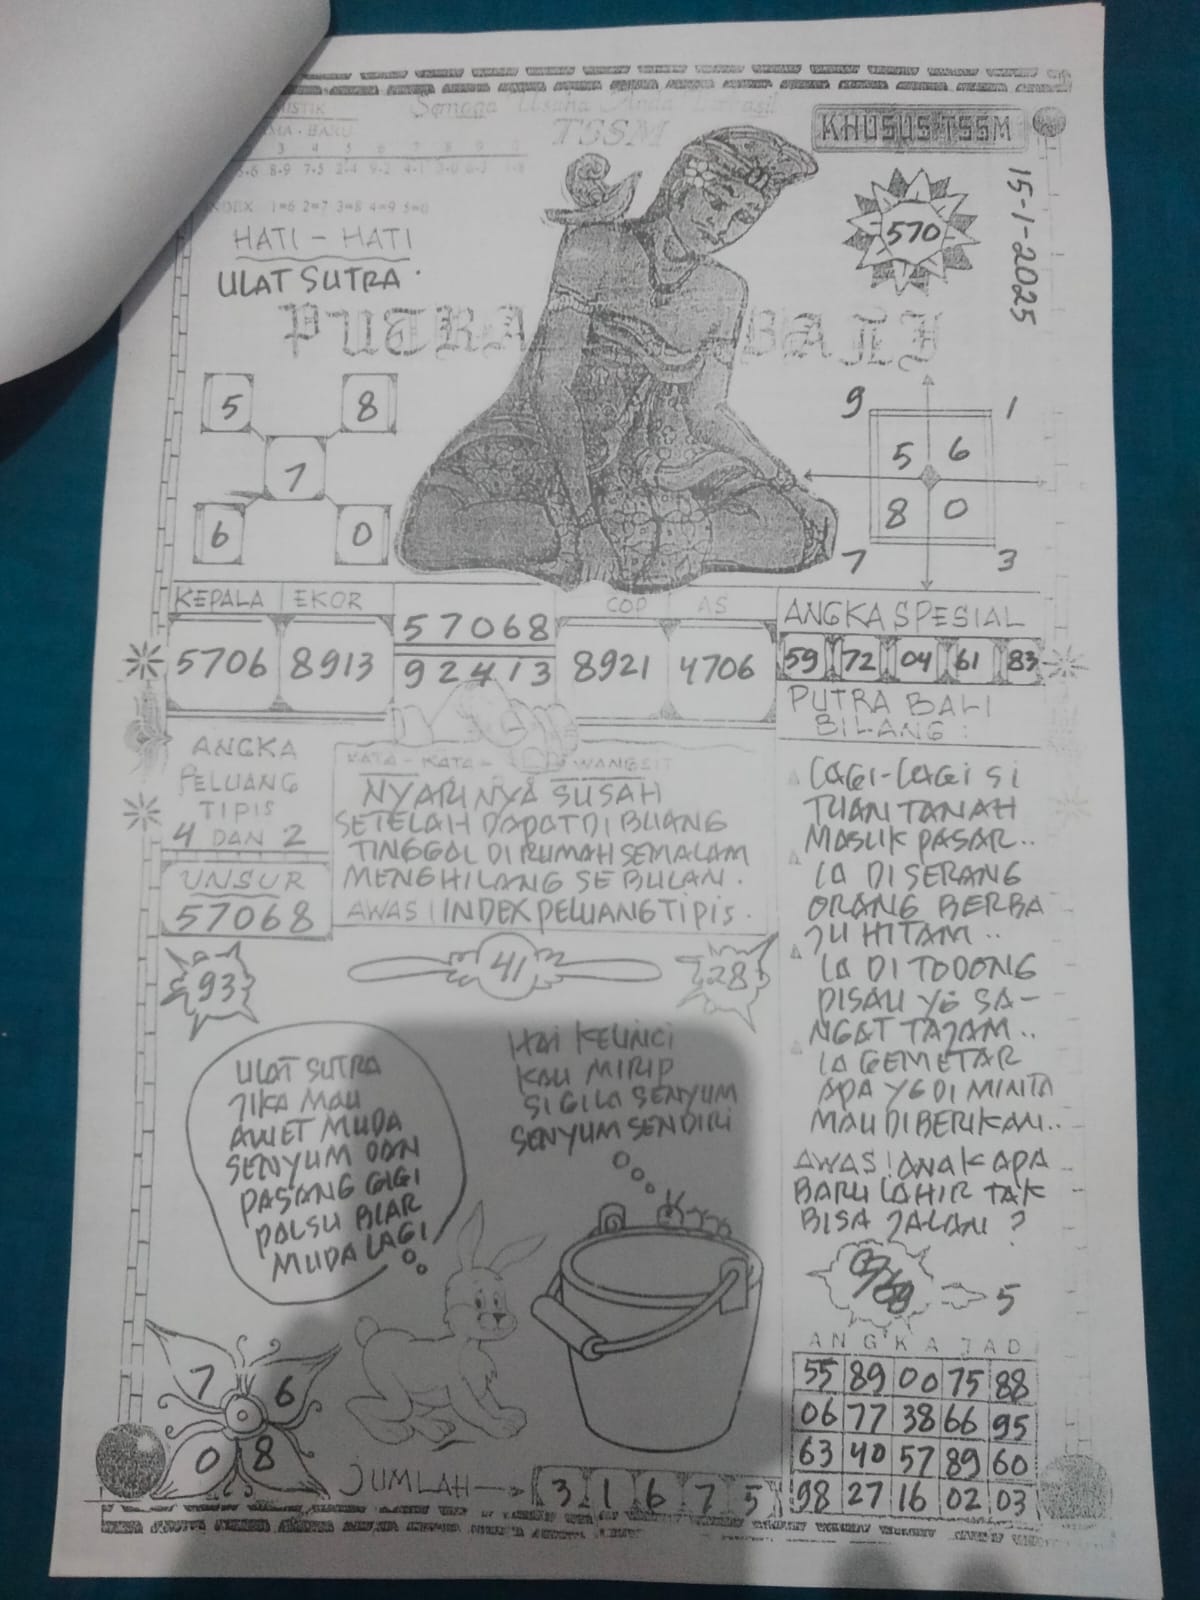 Semoga Usaha Anda
TSSM
KHUSUS TSSM
15-1-2025
MA - BARU
3 4 5 6 7 8 9
8-9 7-5 2-4 9-2 4-1
INDEX 1=6 2=7 3=8 4=9 5=0
HATI - HATI
ULAT SUTRA
570
PUTRA BALI
5 8
7
6 0
9 1
5 6
8 0
7 3
KEPALA EKOR
5706 8913
57068
92413
COP AS
8921 4706
ANGKA SPESIAL
59 72 04 61 83
PUTRA BALI
BILANG :
LAGI-LAGI SI
TUAN TANAH
MASUK PASAR..
IA DI SERANG
ORANG BERBA
JU HITAM ..
IA DI TODONG
PISAU YG SA-
NGAT TAJAM..
IA GEMETAR
APA YG DI MINTA
MAU DIBERIKAN..
AWAS! ANAK APA
BARU LAHIR TAK
BISA JALAN ?
5
ANGKA
PELUANG
TIPIS
4 DAN 2
UNSUR
57068
KATA - KATA - WANGSIT
NYARINYA SUSAH
SETELAH DAPAT DI BUANG
TINGGAL DI RUMAH SEMALAM
MENGHILANG SEBULAN.
AWAS! INDEX PELUANG TIPIS.
93
41
28
ULAT SUTRA
JIKA MAU
AWET MUDA
SENYUM DAN
PASANG GIGI
PALSU BIAR
MUDA LAGI
HAI KELINCI
KAU MIRIP
SI GILA SENYUM
SENYUM SENDIRI
7 6
0 8
JUMLAH
3 1 6 7 5
ANGKA JAD
55 89 00 75 88
06 77 38 66 95
63 40 57 89 60
98 27 16 02 03